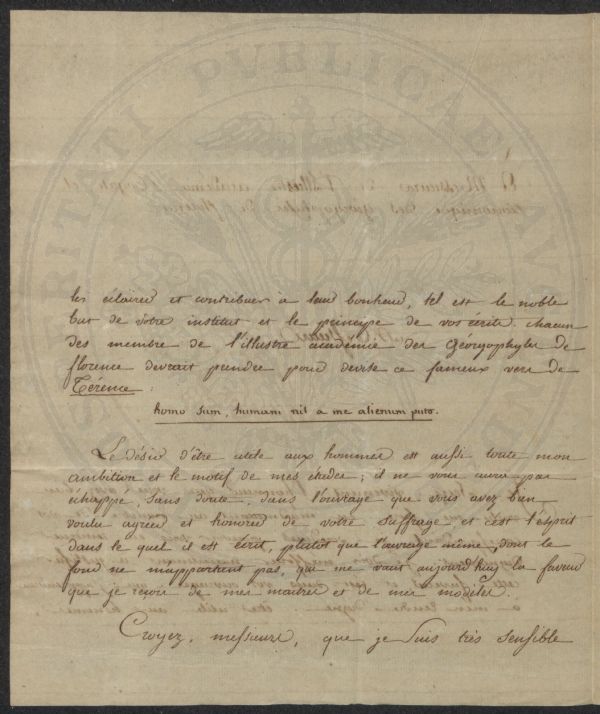 les éclairer et contribuer à leur bonheur, tel est le noble
but de vôtre institut et le principe de vos écrits. chacun
des membre de l'illustre académie des Géorgophyles de
florence devrait prendre pour devise ce fameux vers de
Térence :
homo sum, humani nil a me alienum puto.
Le désir d'être utile aux hommes est aussi toute mon
ambition et le motif de mes études ; il ne vous aura pas
échappé, sans doute, dans l'ouvrage que vous avez bien
voulu agréer et honorer de votre suffrage et c'est l'esprit
dans le quel il est écrit, plutôt que l'ouvrage même, dont le
fond ne m'appartient pas, qui me vaut aujourd'huy la faveur
que je reçois de mes maitres et de mes modèles.
Croyez, messieurs, que je suis très sensible
PUBLICAE